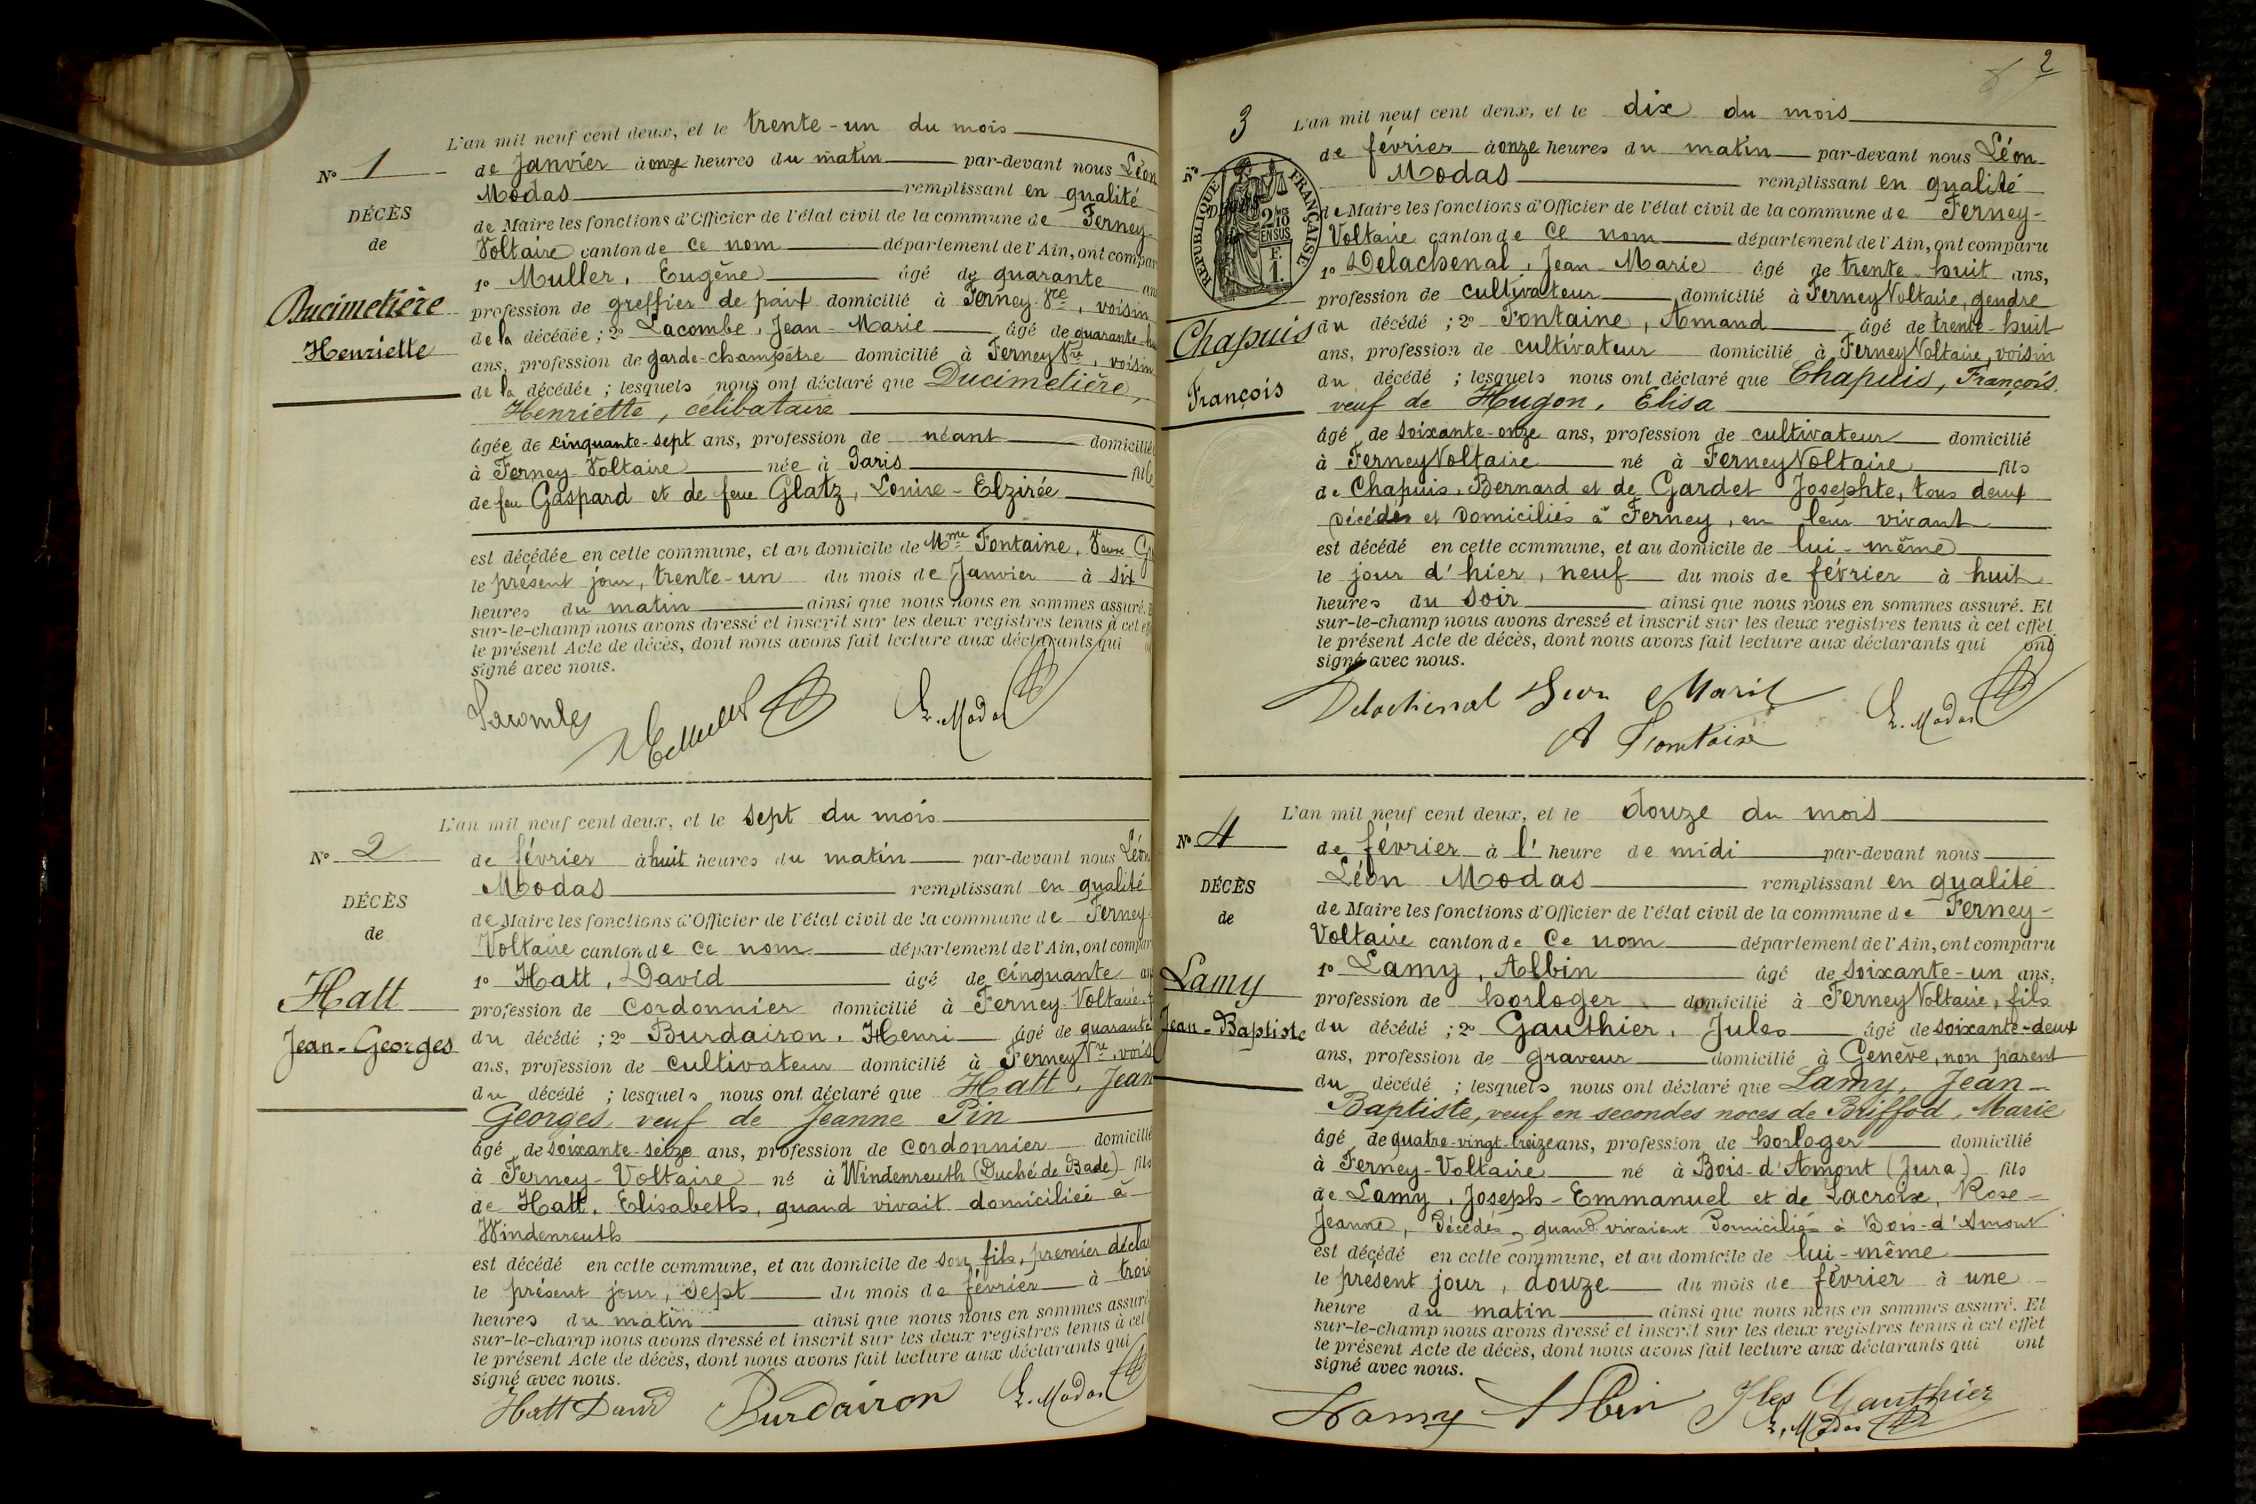 N° 1
DÉCÈS
de
Ducimetière
Henriette
L'an mil neuf cent deux, et le trente-un du mois
de Janvier à onze heures du matin par-devant nous Léon
Modas remplissant en qualité
de Maire les fonctions d'Officier de l'état civil de la commune de Ferney-
Voltaire canton de ce nom département de l'Ain, ont compar
1° Muller, Eugène âgé de quarante an
profession de greffier de paix domicilié à Ferney-Vre, voisin
de la décédée ; 2° Lacombe, Jean-Marie âgé de quarante-hu
ans, profession de garde-champêtre domicilié à Ferney Vre, voisin
de la décédée ; lesquels nous ont déclaré que Ducimetière,
Henriette, célibataire
âgée de cinquante-sept ans, profession de néant domicilié
à Ferney-Voltaire née à Paris fille
de feu Gaspard et de feue Glatz, Louise-Elzirée
est décédée en cette commune, et au domicile de Mme Fontaine, Veuve
le présent jour, trente-un du mois de Janvier à six
heures du matin ainsi que nous nous en sommes assuré.
sur-le-champ nous avons dressé et inscrit sur les deux registres tenus à cet
le présent Acte de décès, dont nous avons fait lecture aux déclarants qui
signé avec nous.
Lacombe
L. Modas
N° 2
DÉCÈS
de
Hatt
Jean-Georges
L'an mil neuf cent deux, et le sept du mois
de février à huit heures du matin par-devant nous Léon
Modas remplissant en qualité
de Maire les fonctions d'Officier de l'état civil de la commune de Ferney-
Voltaire canton de ce nom département de l'Ain, ont compar
1° Hatt, David âgé de cinquante an
profession de cordonnier domicilié à Ferney-Voltaire
du décédé ; 2° Burdairon, Henri âgé de quarante
ans, profession de cultivateur domicilié à Ferney Vre, vois
du décédé ; lesquels nous ont déclaré que Hatt, Jean
Georges, veuf de Jeanne Pin
âgé de soixante-seize ans, profession de cordonnier domicilié
à Ferney-Voltaire né à Windenreuth (Duché de Bade) fils
de Hatt, Elisabeth, quand vivait domiciliée à
Windenreuth
est décédé en cette commune, et au domicile de son fils, premier décla
le présent jour, sept du mois de février à trois
heures du matin ainsi que nous nous en sommes assuré
sur-le-champ nous avons dressé et inscrit sur les deux registres tenus à cet
le présent Acte de décès, dont nous avons fait lecture aux déclarants qui
signé avec nous.
Hatt David Burdairon L. Modas
2
N° 3
RÉPUBLIQUE FRANÇAISE
2/10
EN SUS
F.
1.
Chapuis
François
L'an mil neuf cent deux, et le dix du mois
de février à onze heures du matin par-devant nous Léon
Modas remplissant en qualité
de Maire les fonctions d'Officier de l'état civil de la commune de Ferney-
Voltaire canton de ce nom département de l'Ain, ont comparu
1° Delachenal, Jean-Marie âgé de trente-huit ans,
profession de cultivateur domicilié à Ferney Voltaire, gendre
du décédé ; 2° Fontaine, Amand âgé de trente-huit
ans, profession de cultivateur domicilié à Ferney Voltaire, voisin
du décédé ; lesquels nous ont déclaré que Chapuis, François
veuf de Hugon, Elisa
âgé de soixante-onze ans, profession de cultivateur domicilié
à Ferney Voltaire né à Ferney Voltaire fils
de Chapuis, Bernard et de Gardet Josephte, tous deux
décédés et domiciliés à Ferney, en leur vivant
est décédé en cette commune, et au domicile de lui-même
le jour d'hier, neuf du mois de février à huit
heures du soir ainsi que nous nous en sommes assuré. Et
sur-le-champ nous avons dressé et inscrit sur les deux registres tenus à cet effet
le présent Acte de décès, dont nous avons fait lecture aux déclarants qui ont
signé avec nous.
Delachenal Jean Marie
A Fontaine
L. Modas
N° 4
DÉCÈS
de
Lamy
Jean-Baptiste
L'an mil neuf cent deux, et le douze du mois
de février à l'heure de midi par-devant nous
Léon Modas remplissant en qualité
de Maire les fonctions d'Officier de l'état civil de la commune de Ferney-
Voltaire canton de ce nom département de l'Ain, ont comparu
1° Lamy, Albin âgé de soixante-un ans,
profession de horloger domicilié à Ferney Voltaire, fils
du décédé ; 2° Gauthier, Jules âgé de soixante-deux
ans, profession de graveur domicilié à Genève, non parent
du décédé ; lesquels nous ont déclaré que Lamy, Jean-
Baptiste, veuf en secondes noces de Briffod, Marie
âgé de quatre-vingt-treize ans, profession de horloger domicilié
à Ferney-Voltaire né à Bois-d'Amont (Jura) fils
de Lamy, Joseph-Emmanuel et de Lacroix, Rose-
Jeanne, décédés, quand vivaient domiciliés à Bois-d'Amont
est décédé en cette commune, et au domicile de lui-même
le présent jour, douze du mois de février à une
heure du matin ainsi que nous nous en sommes assuré. Et
sur-le-champ nous avons dressé et inscrit sur les deux registres tenus à cet effet
le présent Acte de décès, dont nous avons fait lecture aux déclarants qui ont
signé avec nous.
Lamy Albin Jles Gauthier
L. Modas